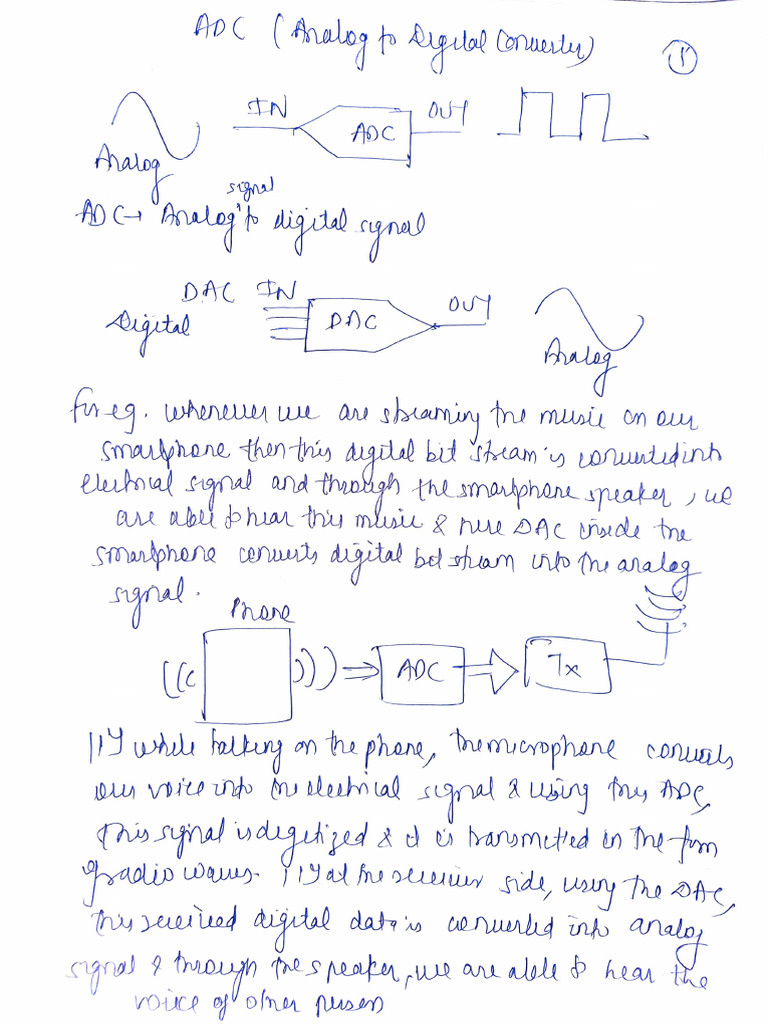 ADC (Analog to Digital Converter)
1
IN
OUT
ADC
Analog
signal
ADC → Analog to digital signal
DAC IN
OUT
Digital
DAC
Analog
for eg. whenever we are streaming the music on our
smartphone then this digital bit stream is converted into
electrical signal and through the smartphone speaker, we
are able to hear this music & here DAC inside the
smartphone converts digital bit stream into the analog
signal.
Phone
ADC
Tx
||ly while talking on the phone, the microphone converts
our voice into the electrical signal & using this ADC,
this signal is degitized & it is transmitted in the form
of radio waves. ||ly at the receiver side, using the DAC,
this received digital data is converted into analog
signal & through the speaker, we are able to hear the
voice of other person